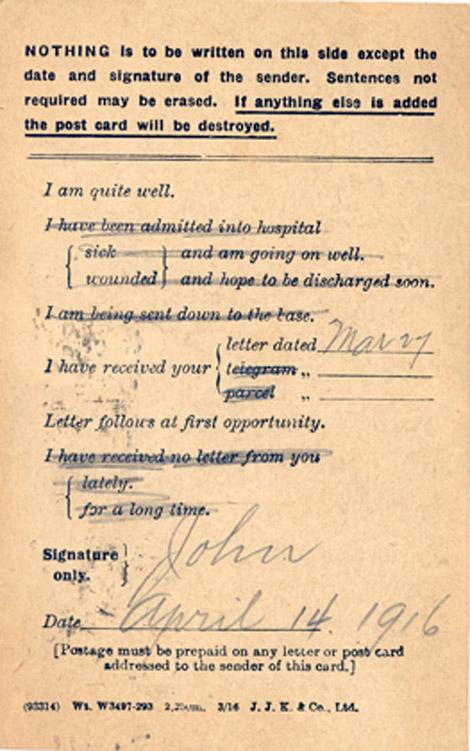 NOTHING is to be written on this side except the
date and signature of the sender. Sentences not
required may be erased. If anything else is added
the post card will be destroyed.
I am quite well.
I have been admitted into hospital
sick and am going on well.
wounded and hope to be discharged soon.
I am being sent down to the base.
letter dated Mar 27
I have received your telegram „
parcel „
Letter follows at first opportunity.
I have received no letter from you
lately.
for a long time.
Signature only. John
Date April 14. 1916
[Postage must be prepaid on any letter or post card
addressed to the sender of this card.]
(93314) Wt. W3497-293 3/16 J. J. K. & Co., Ltd.